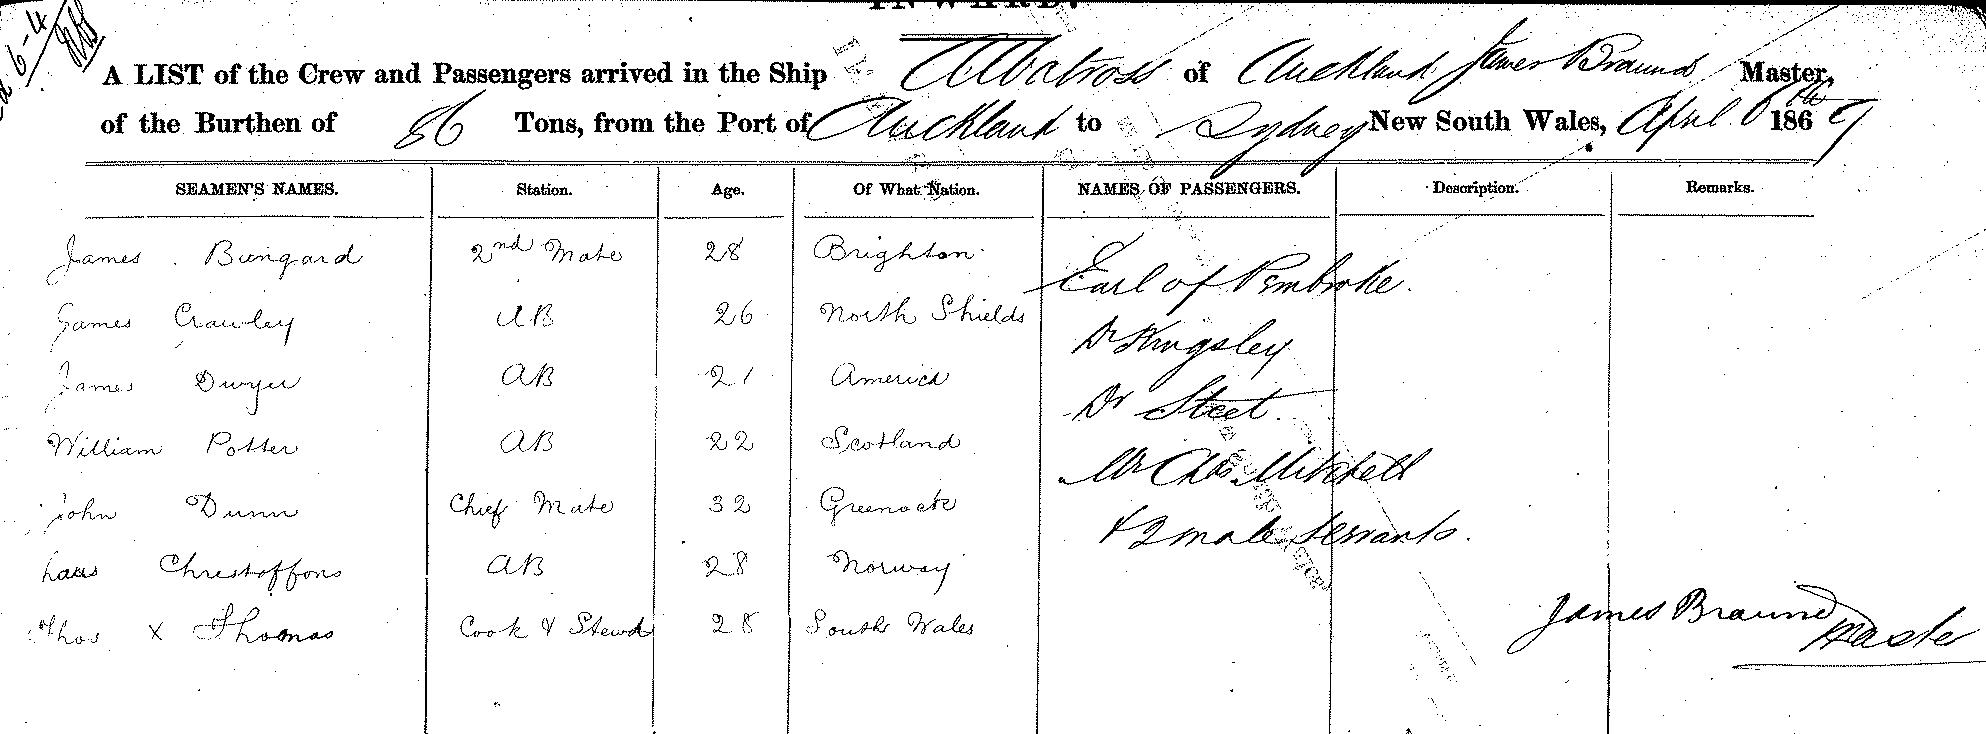 INWARD.
6-4
A LIST of the Crew and Passengers arrived in the Ship Albatross of Auckland James Braund Master,
of the Burthen of 86 Tons, from the Port of Auckland to Sydney New South Wales, April 6th 1869
SEAMEN'S NAMES. Station. Age. Of What Nation. NAMES OF PASSENGERS. Description. Remarks.
James Bungard 2nd Mate 28 Brighton
Earl of Pembroke.
James Crawley AB 26 North Shields
Dr Kingsley
James Dwyer AB 21 America
Dr Steet.
William Potter AB 22 Scotland
Mr Chas. Mitchell
John Dunn Chief Mate 32 Greenock
& 2 male Servants.
Chrestoffons AB 28 Norway
Thos x Thomas Cook & Stewd 28 South Wales
James Braund
Master